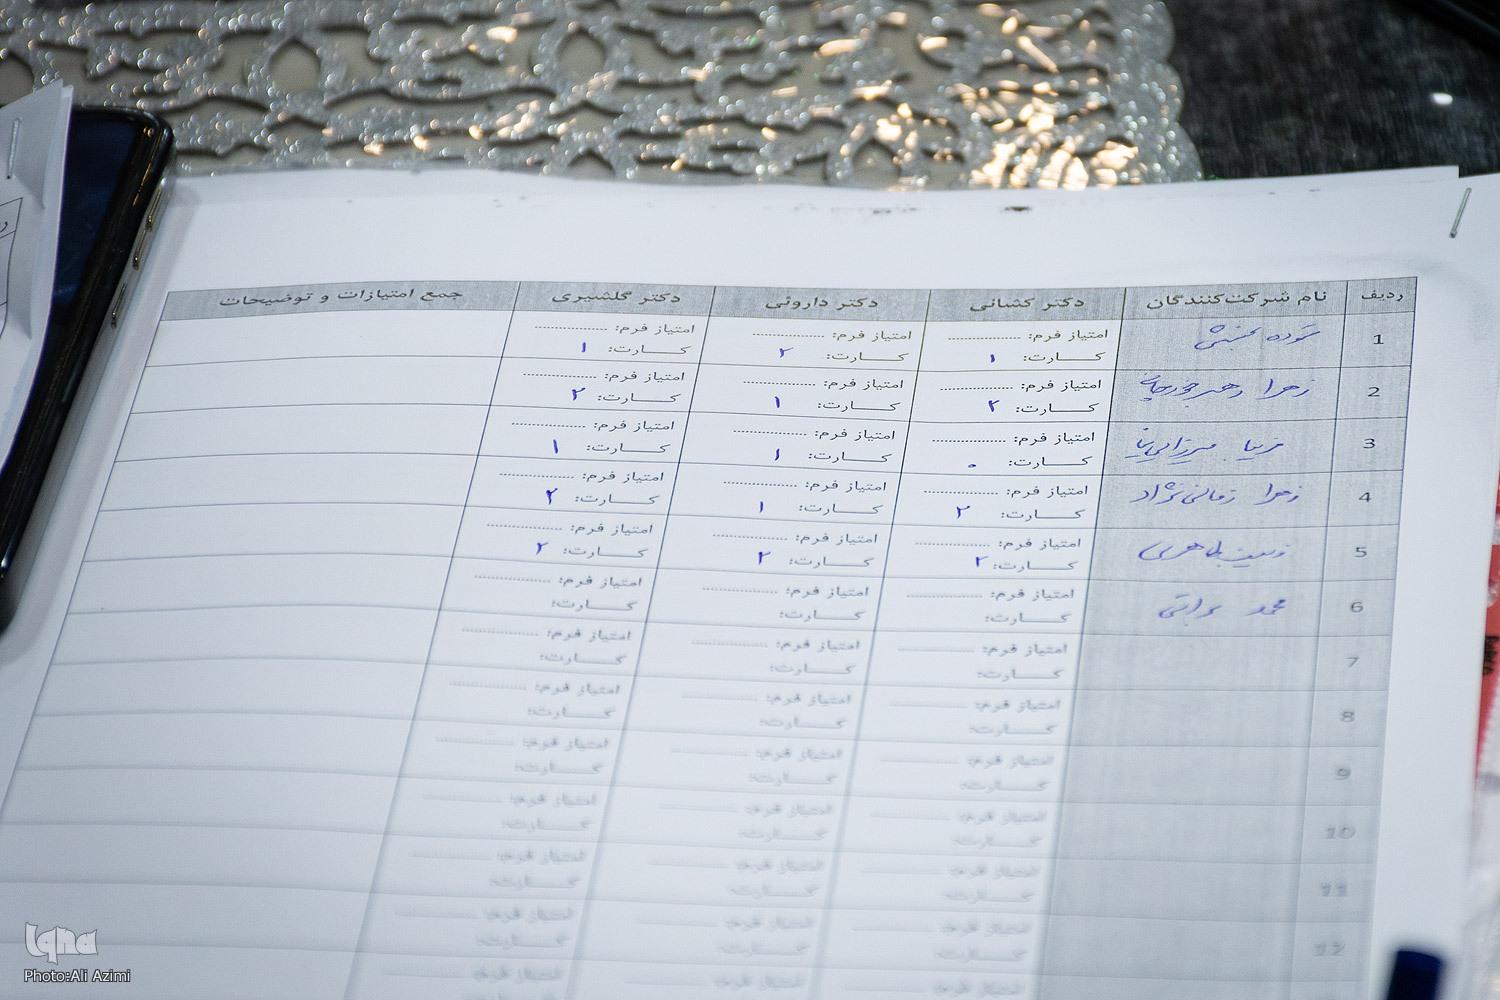 ردیف نام شرکت‌کنندگان دکتر کشانی دکتر دارونی دکتر گلشیری جمع امتیازات و توضیحات
1 امتیاز فرم: .................... امتیاز فرم: .................... امتیاز فرم: ....................
کارت: ۱ کارت: ۲ کارت: ۱
2 زهرا امتیاز فرم: .................... امتیاز فرم: .................... امتیاز فرم: ....................
کارت: ۲ کارت: ۱ کارت: ۲
3 امتیاز فرم: .................... امتیاز فرم: .................... امتیاز فرم: ....................
کارت: ۰ کارت: ۱ کارت: ۱
4 زهرا زمانی نژاد امتیاز فرم: .................... امتیاز فرم: .................... امتیاز فرم: ....................
کارت: ۲ کارت: ۱ کارت: ۲
5 امتیاز فرم: .................... امتیاز فرم: .................... امتیاز فرم: ....................
کارت: ۲ کارت: ۲ کارت: ۲
6 محمد براتی امتیاز فرم: .................... امتیاز فرم: .................... امتیاز فرم: ....................
کارت: کارت: کارت:
7 امتیاز فرم: .................... امتیاز فرم: .................... امتیاز فرم: ....................
کارت: کارت: کارت:
8 امتیاز فرم: .................... امتیاز فرم: .................... امتیاز فرم: ....................
کارت: کارت: کارت:
9 امتیاز فرم: .................... امتیاز فرم: .................... امتیاز فرم: ....................
کارت: کارت: کارت:
10 امتیاز فرم: .................... امتیاز فرم: .................... امتیاز فرم: ....................
کارت: کارت: کارت:
11 امتیاز فرم: .................... امتیاز فرم: .................... امتیاز فرم: ....................
کارت: کارت: کارت:
12 امتیاز فرم: .................... امتیاز فرم: .................... امتیاز فرم: ....................
کارت: کارت: کارت:
iqna
Photo:Ali Azimi